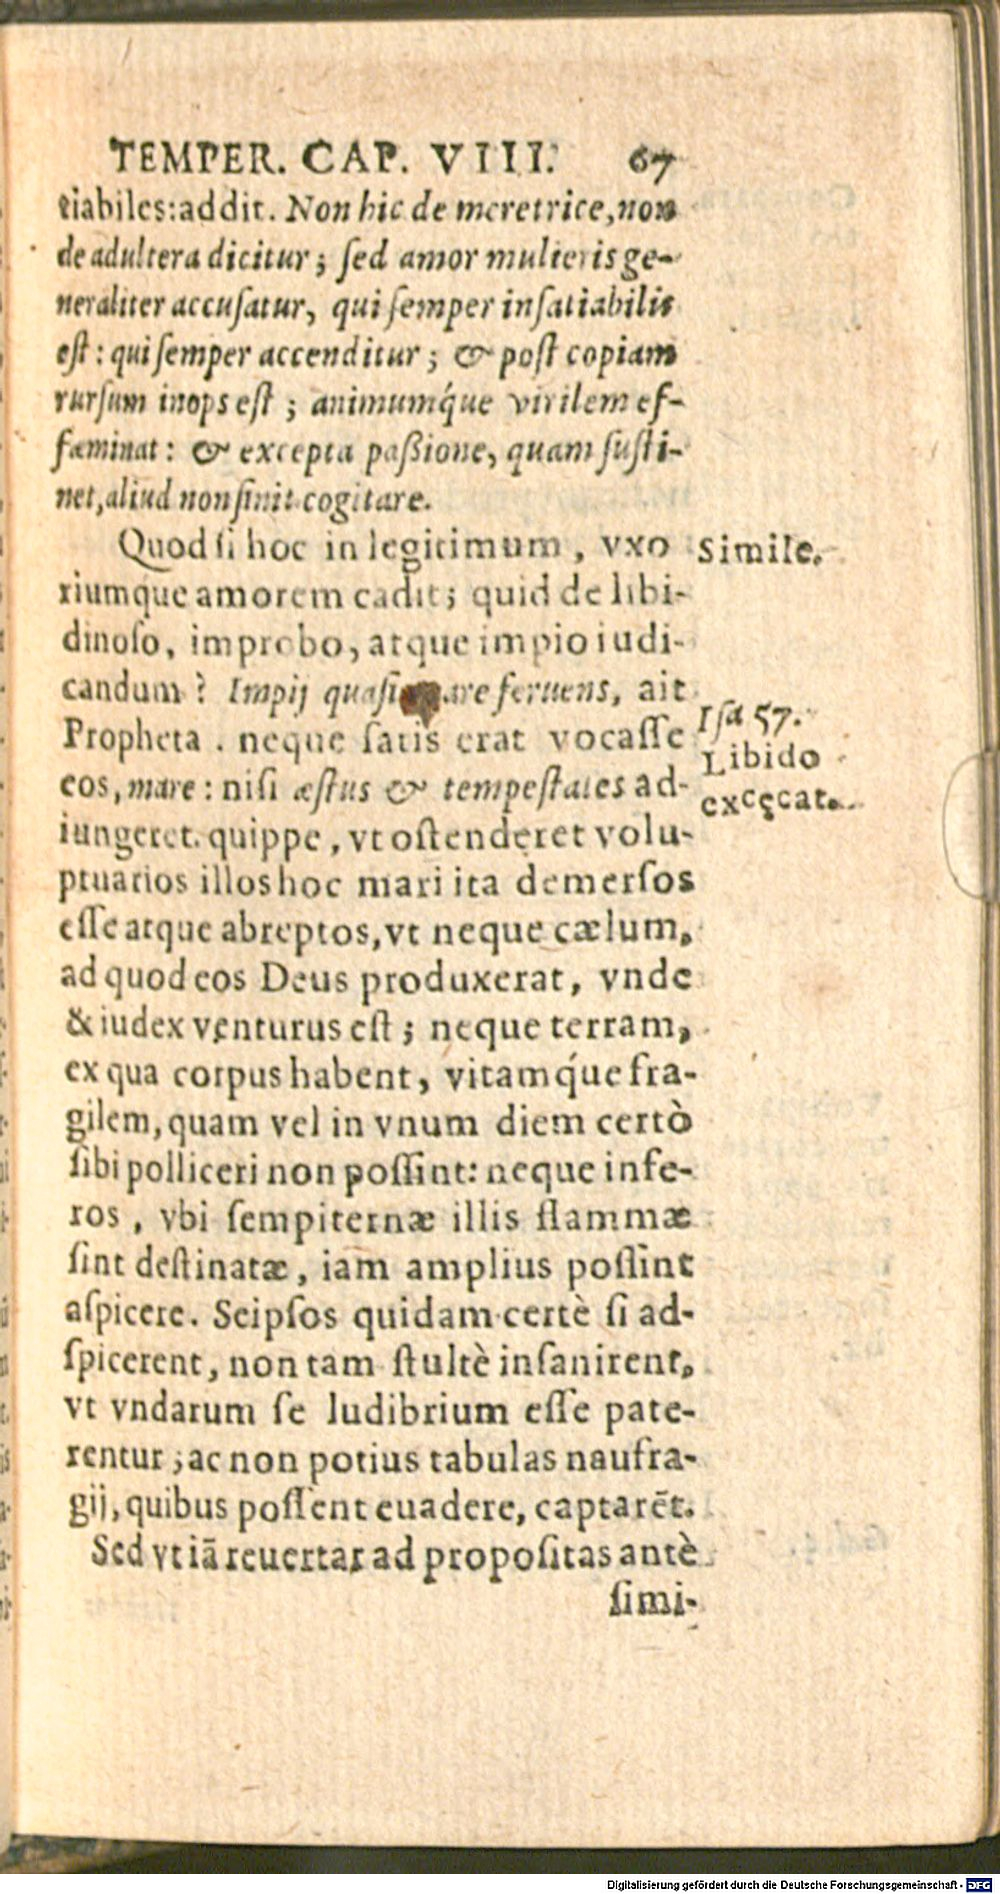 TEMPER. CAP. VIII. 67
tiabiles: addit. Non hic de meretrice, non
de adultera dicitur; sed amor mulieris ge-
neraliter accusatur, qui semper insatiabilis
est: qui semper accenditur; & post copiam
rursum inops est; animumq́ue virilem ef-
fæminat: & excepta paßione, quam susti-
net, aliud non sinit cogitare.
Quod si hoc in legitimum, vxo
riumque amorem cadit; quid de libi-
dinoso, improbo, atque impio iudi-
candum? Impij quasi mare feruens, ait
Propheta. neque satis erat vocasse
eos, mare: nisi æstus & tempestates ad-
iungeret. quippe, vt ostenderet volu-
ptuarios illos hoc mari ita demersos
esse atque abreptos, vt neque cælum,
ad quod eos Deus produxerat, vnde
& iudex venturus est; neque terram,
ex qua corpus habent, vitamq́ue fra-
gilem, quam vel in vnum diem certò
sibi polliceri non possint: neque infe-
ros, vbi sempiternæ illis flammæ
sint destinatæ, iam amplius possint
aspicere. Seipsos quidam certè si ad-
spicerent, non tam stultè insanirent,
vt vndarum se ludibrium esse pate-
rentur; ac non potius tabulas naufra-
gij, quibus possent euadere, captarēt.
Sed vt iā reuertar ad propositas antè
simi-
Simile.
Isa 57.
Libido
excęcat.
Digitalisierung gefördert durch die Deutsche Forschungsgemeinschaft - DFG